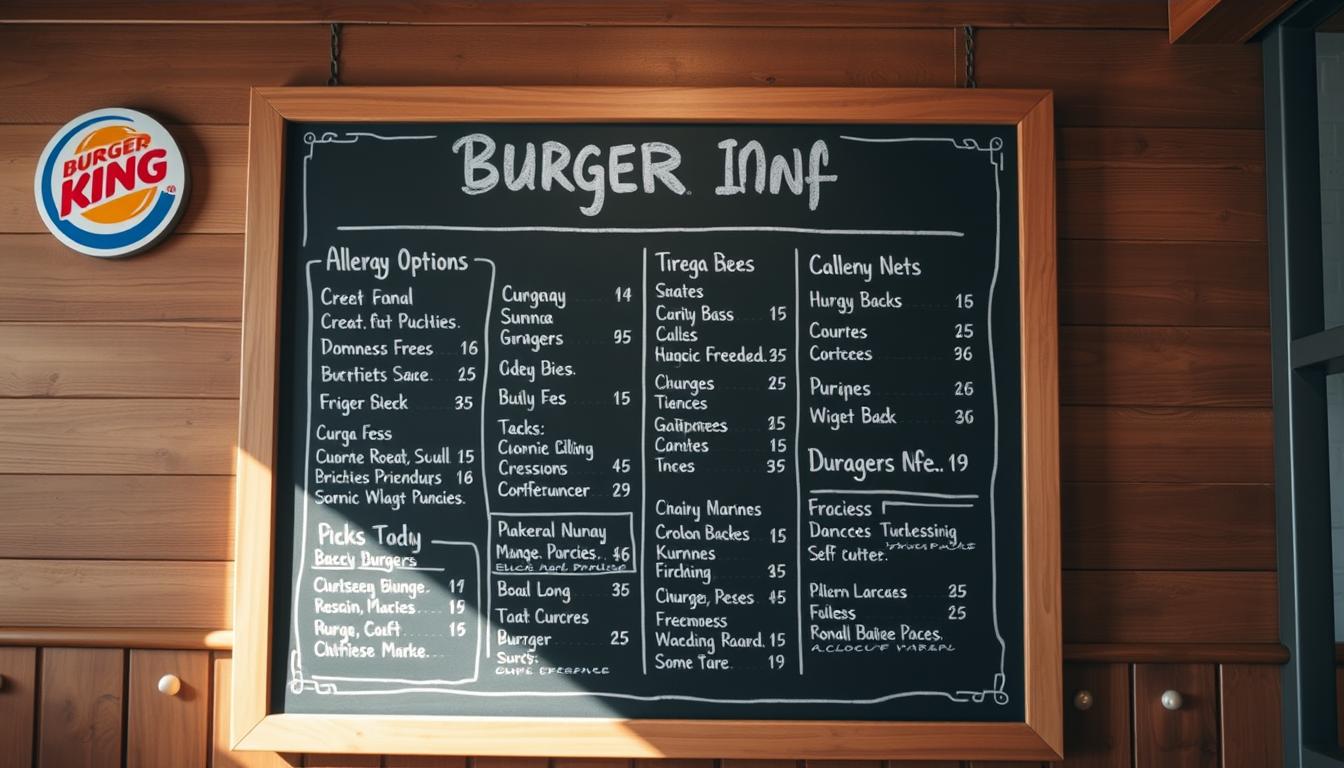 BURGER KING
BURGER INNF
Allergy Options
Creet Fomal
Creat. fut Puchlies.
Domness Frees 16
Bucrfiets Sauce. 25
Friger Sleck 35
Curga Fess
Cuorne Roeat, Scull 15
Brichies Priendurs 16
Sornic Wlagt Puncies.
Picks Today
Baccy Durgers
Curlseen Blunge. 17
Resain, Macles 15
Rurge, Coft 15
Chifhiese Marke.
Curgnay 14
Sumnca
Giringers 95
Cdey Bies.
Buily Fes 15
Tacks:
Cressions 45
Confferuncer 29
Pakeral Nunay
Mange. Porcies. 46
Boal Long 35
Taat Curcres
Burrger 25
Surcs:
Tirega Bees
Snates
Carity Bass 15
Calles
Hugcic Freeded. 35
Churges 25
Tiences
25
Camtes 15
Tnces 35
Chairy Marnes
Crolon Backes 15
Kurnnes
Firchning 35
Churge, Peses 45
Freemness
Wacding Raard. 15
Some Tare. 19
Calleny Nets
Hurgy Backs 15
Courtes 25
Corteces 36
Puripes 26
Wiget Back 36
Duragers Nfe.. 19
Frociess
Dancces Tucksssinig
Self cutter.
Pllern Larcass 25
Folless 25
Ronall Balise Paces.